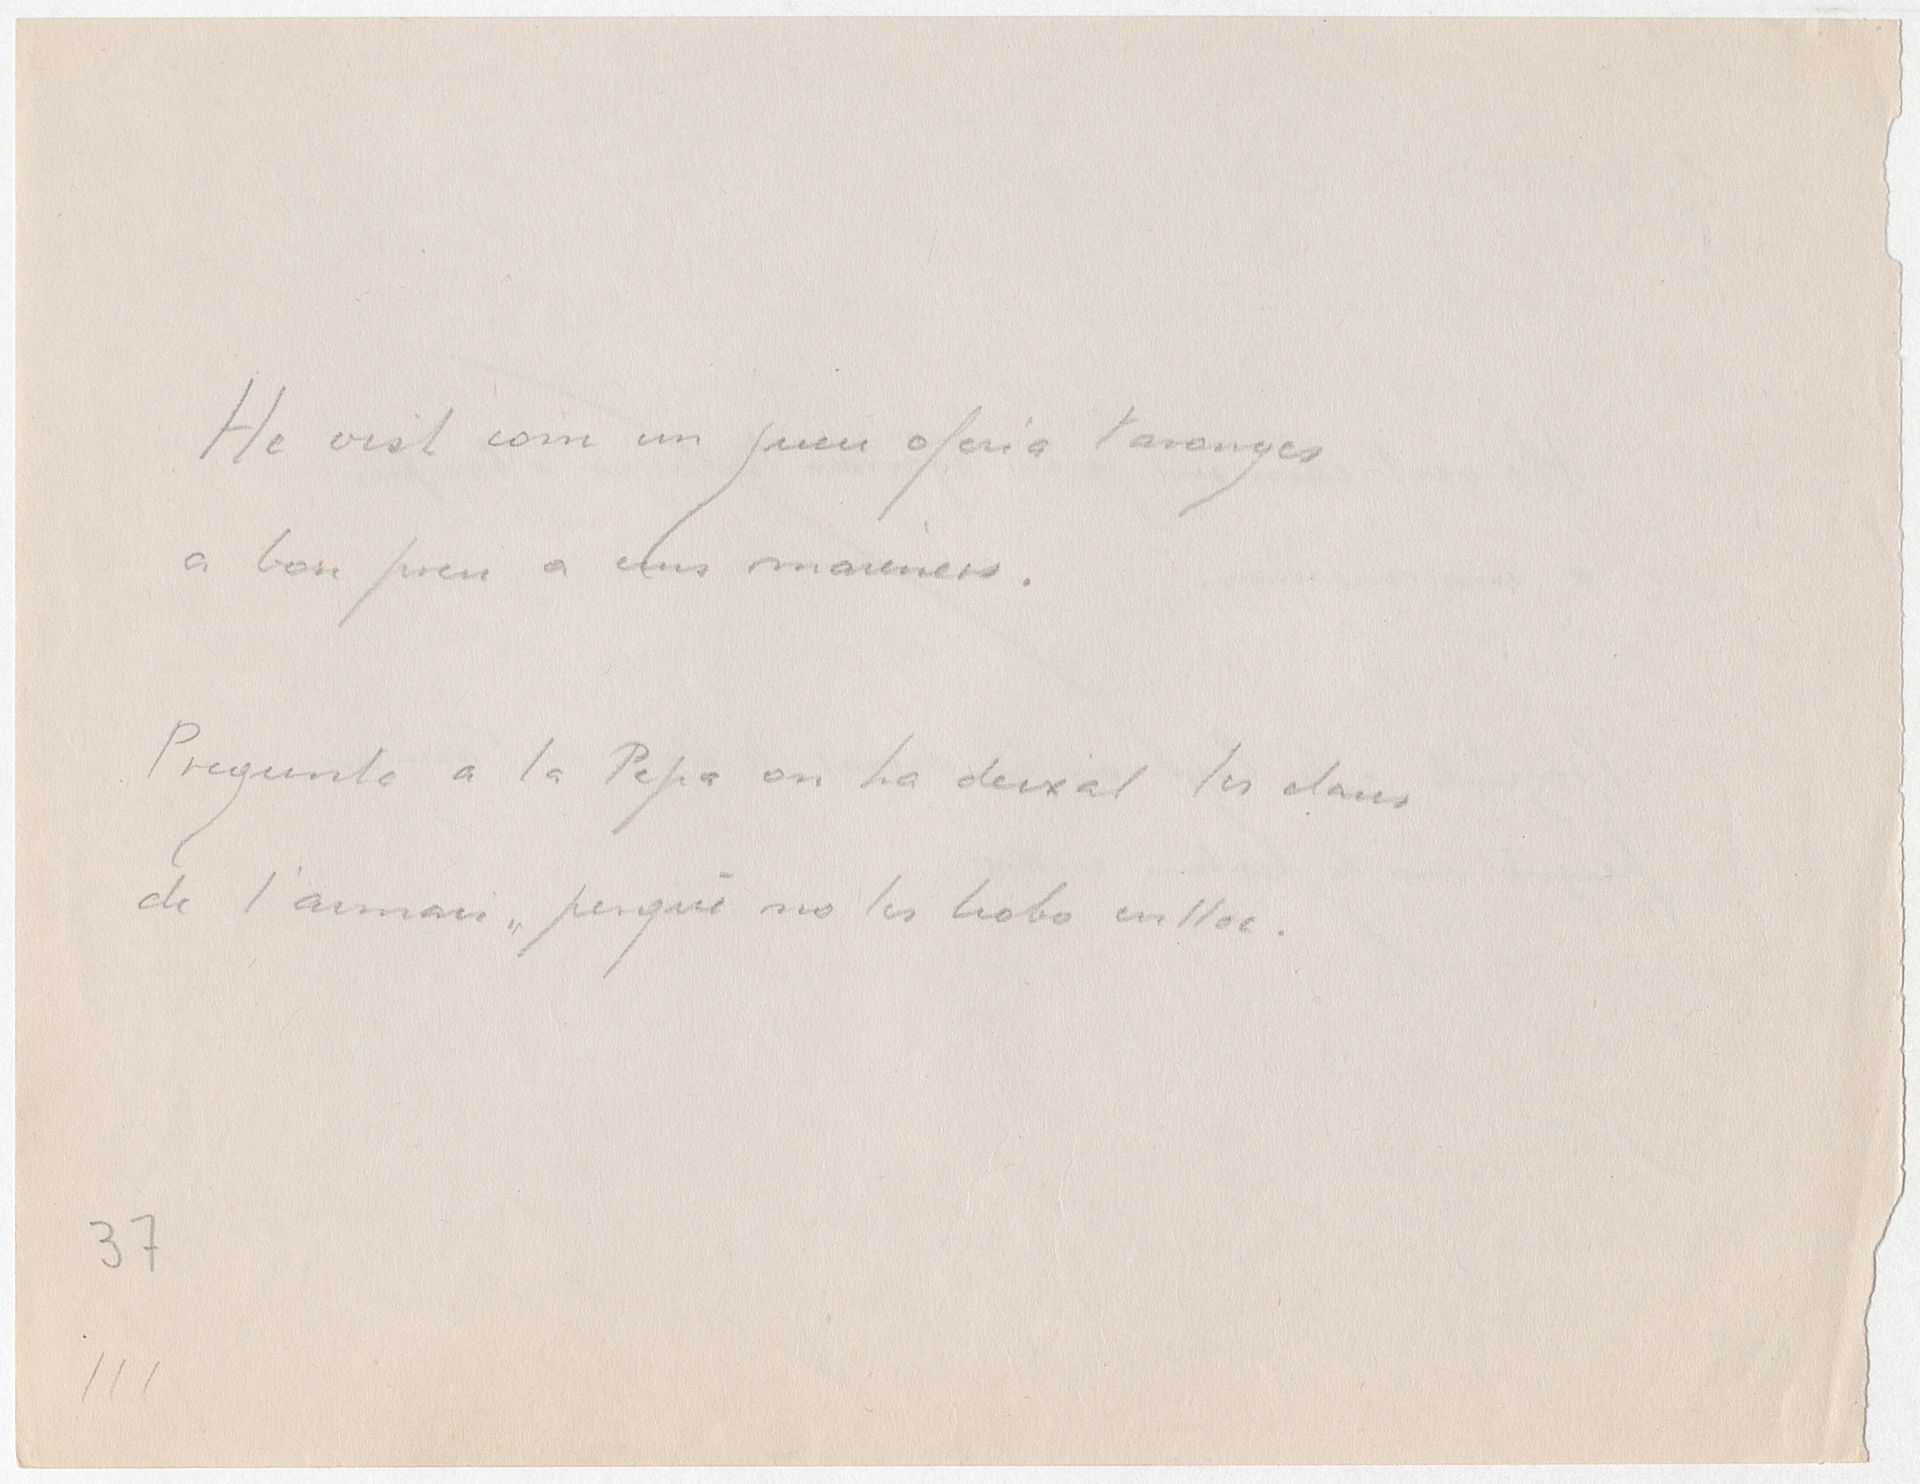 He vist com un jueu oferia taronges
a bon preu a uns mariners.
Pregunte a la Pepa on ha deixat les claus
de l'armari, perquè no les trobo enlloc.
37
///